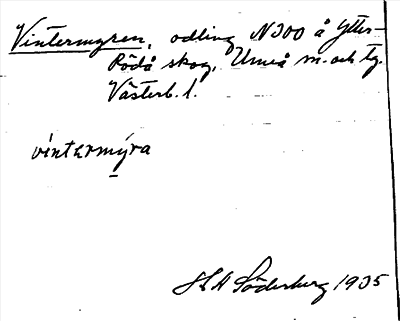 Vintermyren, odling N300 å Ytter-
Rödå skog, Umeå m. och tg.
Västerb. l.
vintermýra
SLH Söderberg 1935